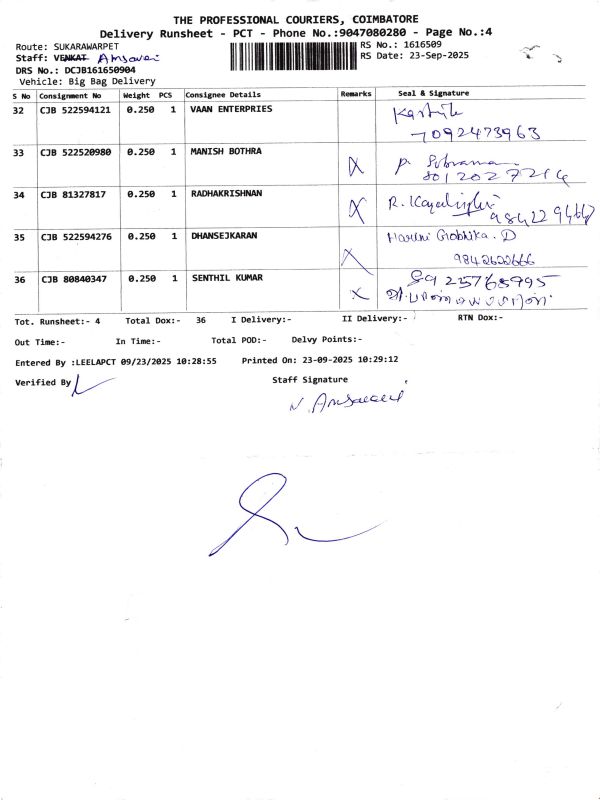 THE PROFESSIONAL COURIERS, COIMBATORE
Delivery Runsheet - PCT - Phone No.:9047080280 - Page No.:4
Route: SUKARAWARPET
RS No.: 1616509
Staff: VENKAT
RS Date: 23-Sep-2025
DRS No.: DCJB161650904
Vehicle: Big Bag Delivery
S No Consignment No Weight PCS Consignee Details Remarks Seal & Signature
32 CJB 522594121 0.250 1 VAAN ENTERPRIES
7092473963
33 CJB 522520980 0.250 1 MANISH BOTHRA X P.
34 CJB 81327817 0.250 1 RADHAKRISHNAN X R.
35 CJB 522594276 0.250 1 DHANSEJKARAN X Harini Grobhika. D
36 CJB 80840347 0.250 1 SENTHIL KUMAR X
Tot. Runsheet:- 4 Total Dox:- 36 I Delivery:- II Delivery:- RTN Dox:-
Out Time:- In Time:- Total POD:- Delvy Points:-
Entered By :LEELAPCT 09/23/2025 10:28:55 Printed On: 23-09-2025 10:29:12
Verified By
Staff Signature